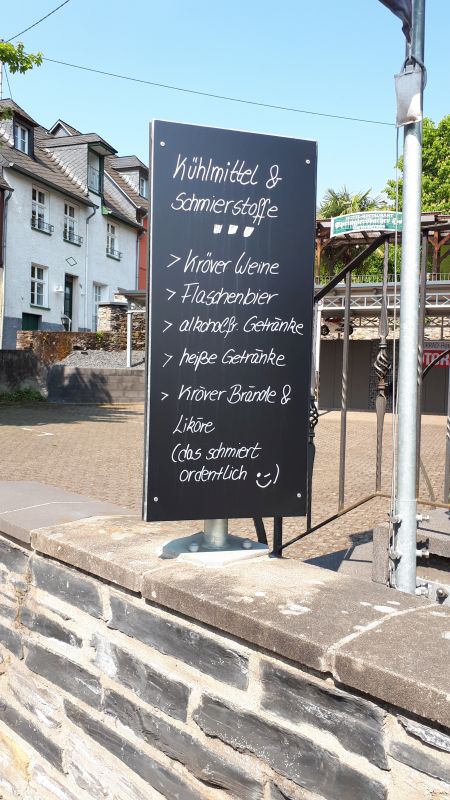 Kühlmittel &
Schmierstoffe
> Kröver Weine
> Flaschenbier
> alkoholfr. Getränke
> heiße Getränke
> Kröver Brände &
Liköre
(das schmiert
ordentlich :-))